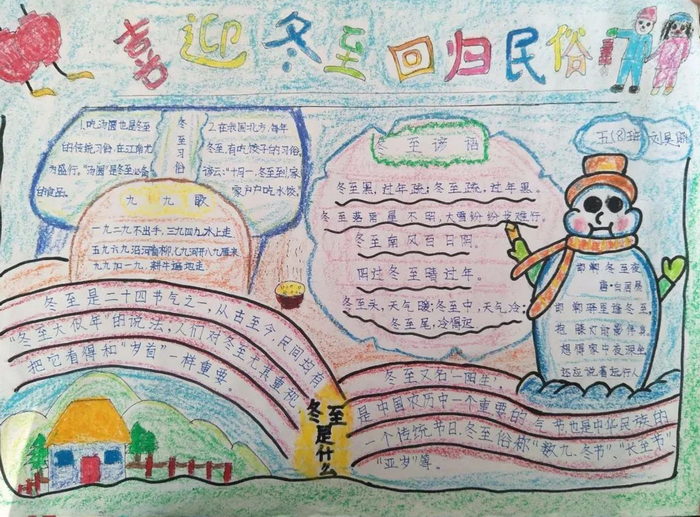 喜迎冬至 回归民俗
五(8)班 刘昊
冬至习俗
1.吃汤圆也是冬至
的传统习俗,在江南尤
为盛行。"汤圆"是冬至必备
的食品。
2.在我国北方,每年
冬至,有吃饺子的习俗,
谚云:"十月一,冬至到,家
家户户吃水饺。
九九歌
一九二九不出手,三九四九冰上走
五九六九沿河看柳,七九河开八九雁来
九九加一九,耕牛遍地走
冬至谚语
冬至黑,过年疏;冬至疏,过年黑。
冬至落雨星不明,大雪纷纷步难行。
冬至南风百日阴。
阴过冬至晴过年。
冬至头,天气暖;冬至中,天气冷;
冬至尾,冷得迟
邯郸冬至夜
唐·白居易
邯郸驿里逢冬至,
抱膝灯前影伴身。
想得家中夜深坐
还应说着远行人
冬至是二十四节气之一,从古至今,民间均有
"冬至大似年"的说法,人们对冬至尤其重视
把它看得和"岁首"一样重要。
冬至是什么
冬至又名"一阳生",
是中国农历中一个重要的节气也是中华民族的
一个传统节日,冬至俗称"数九、冬节"、"长至节"
"亚岁"等。